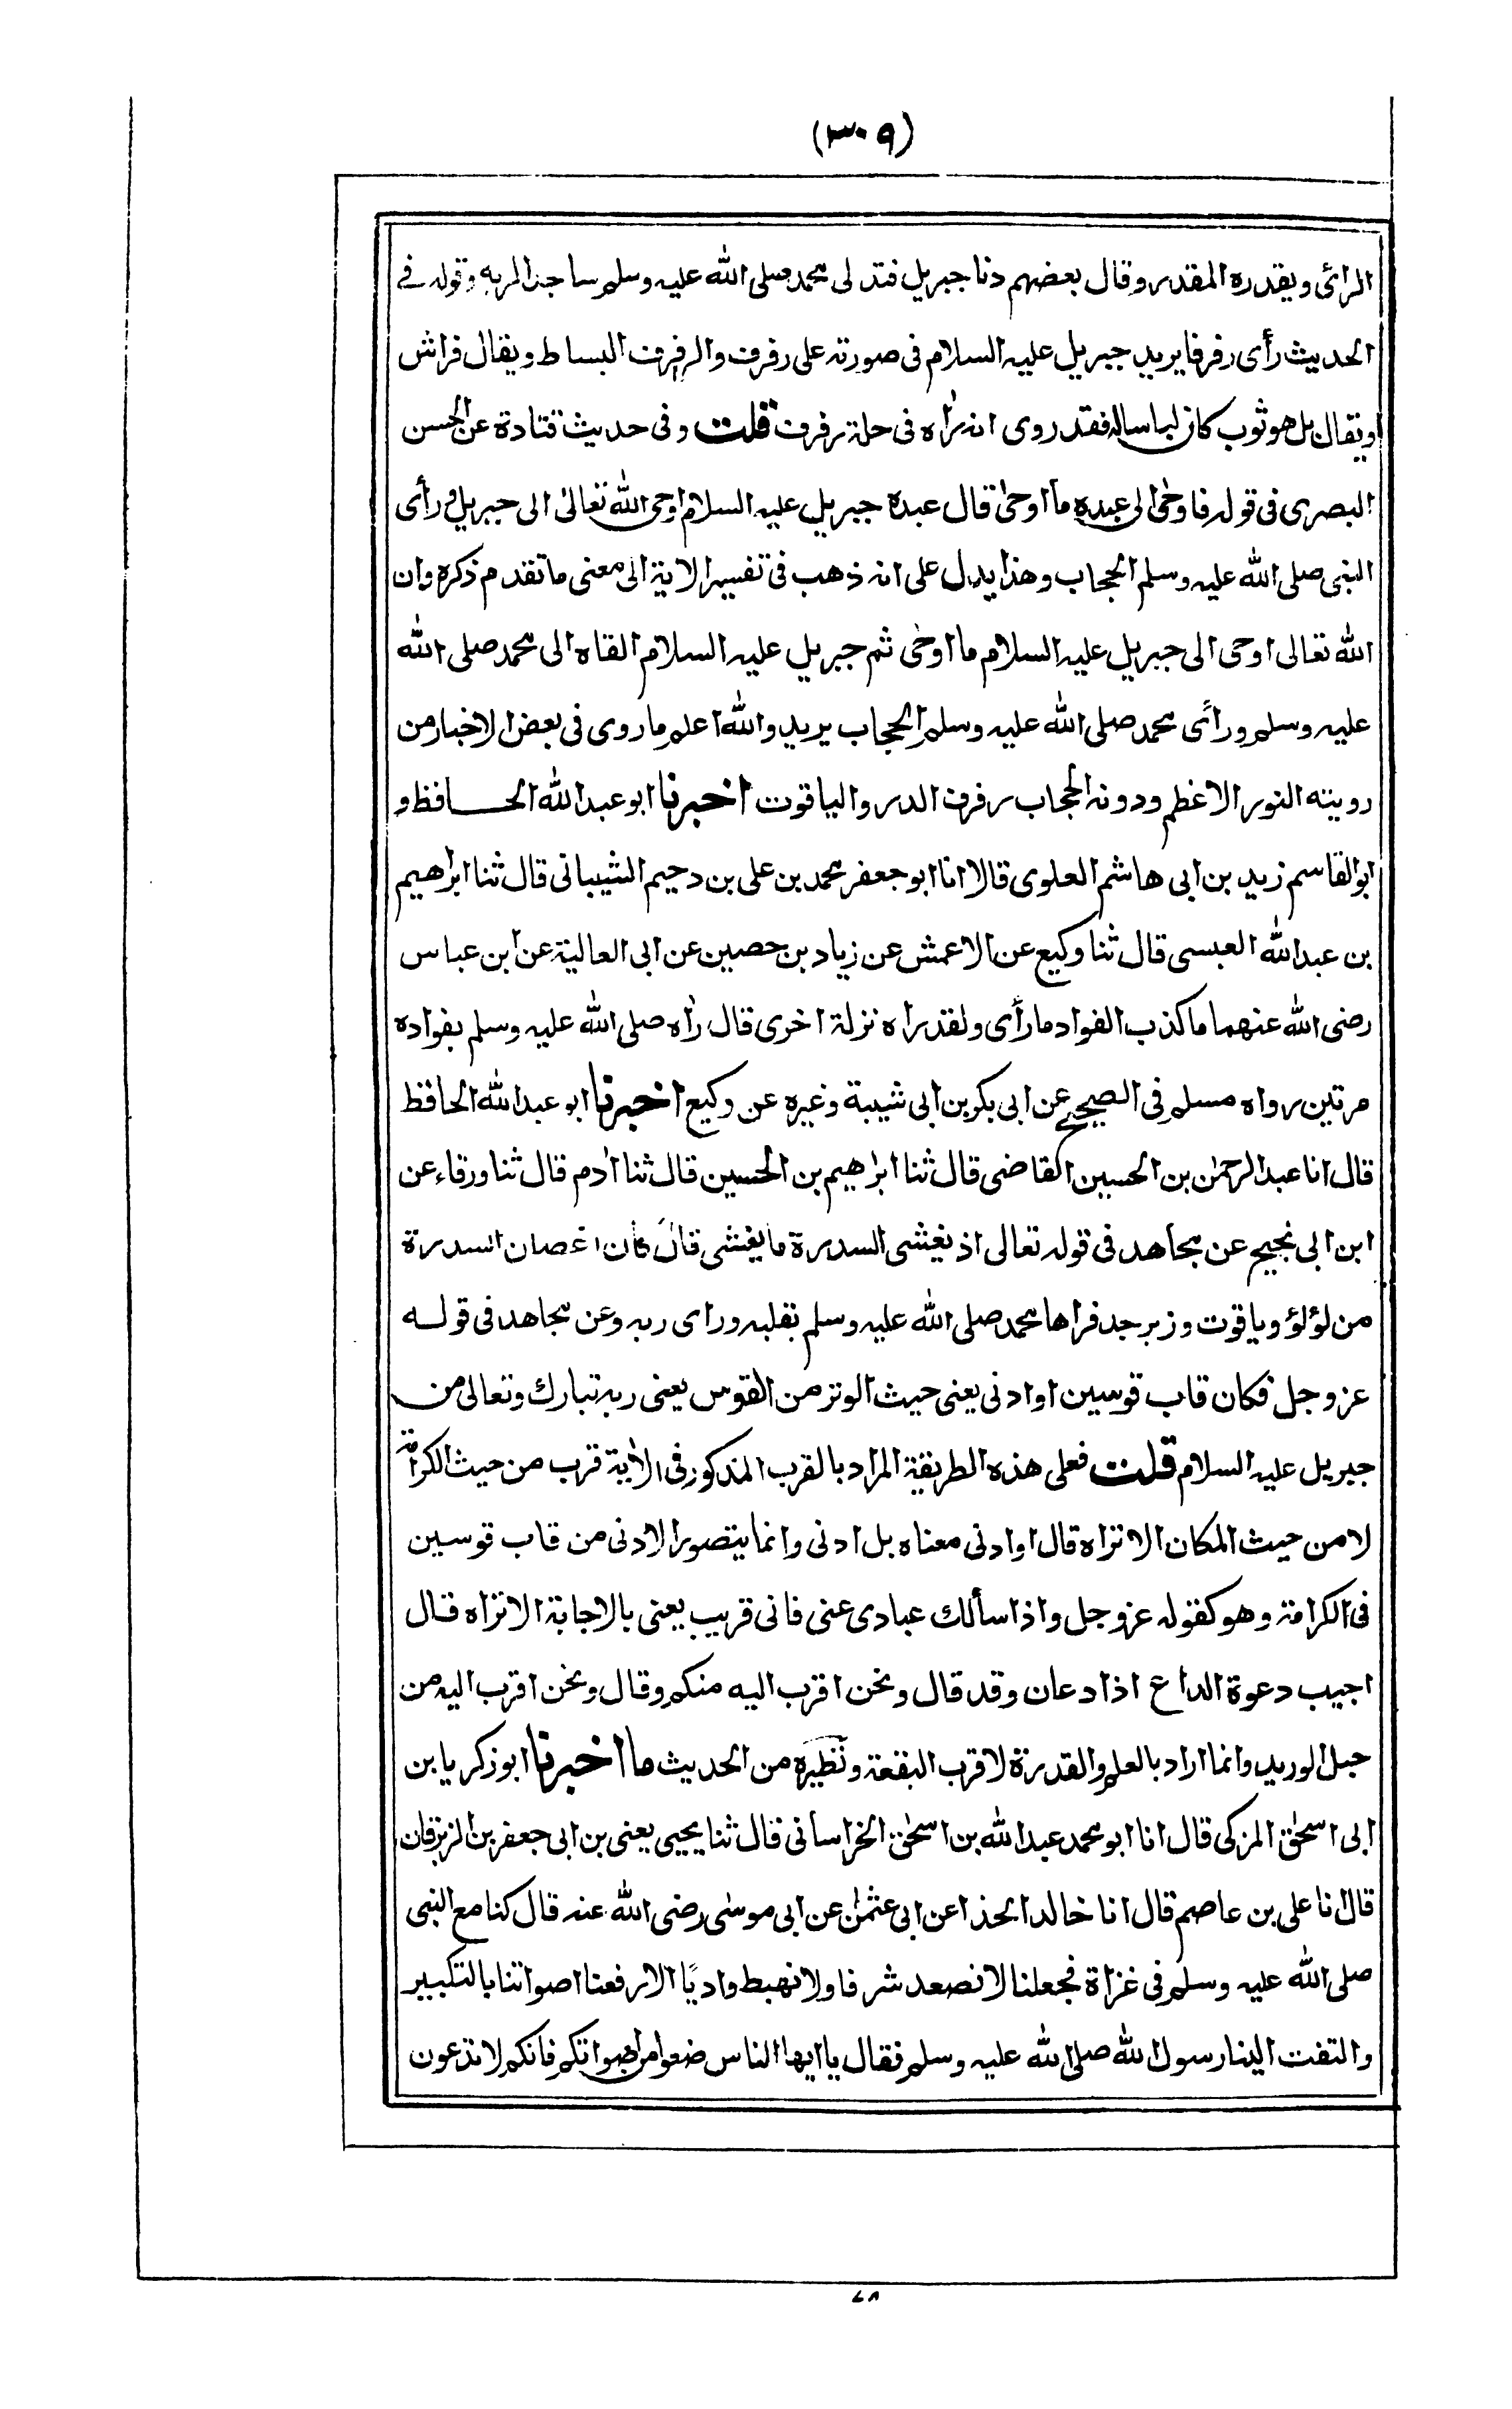 (٣٠٩)
الرائى ويقدره المقدر وقال بعضهم دنا جبريل فتدلى محمد صلى الله عليه وسلم ساجدا لربه وقوله فى
الحديث رأى رفرفا يريد جبريل عليه السلام فى صورته على رفرف والرفرف البساط ويقال فراش
ويقال بل هو ثوب كان لباسا له فقد روى انه رٰاه فى حلة رفرف قلت وفى حديث قتادة عن الحسن
البصرى فى قوله فاوحٰى الى عبده ما اوحٰى قال عبده جبريل عليه السلام اوحى الله تعالىٰ الى جبريل و رأى
النبى صلى الله عليه وسلم الحجاب وهذا يدل على انه ذهب فى تفسير الاية الى معنى ما تقدم ذكره وان
الله تعالى اوحى الى جبريل عليه السلام ما اوحٰى ثم جبريل عليه السلام القاه الى محمد صلى الله
عليه وسلم ورأى محمد صلى الله عليه وسلم الحجاب يريد والله اعلم ما روى فى بعض الاخبار من
رويته النور الاعظم ودونه الحجاب رفرف الدر والياقوت اخبرنا ابو عبد الله الحـــافظ و
ابو القاسم زيد بن ابى هاشم العلوى قالا انا ابو جعفر محمد بن على بن دحيم الشيبانى قال ثنا ابراهيم
بن عبد الله العبسى قال ثنا وكيع عن الاعمش عن زياد بن حصين عن ابى العالية عن ابن عباس
رضى الله عنهما ما كذب الفواد ما رأى ولقد راه نزلة اخرى قال رٰاه صلى الله عليه وسلم بفواده
مرتين رواه مسلم فى الصحيح عن ابى بكر بن ابى شيبة وغيره عن وكيع اخبرنا ابو عبد الله الحافظ
قال انا عبد الرحمٰن بن الحسين القاضى قال ثنا ابراهيم بن الحسين قال ثنا اٰدم قال ثنا ورقاء عن
ابن ابى نجيح عن مجاهد فى قوله تعالى اذ يغشى السدرة ما يغشى قال كان اغصان السدرة
من لؤلؤ وياقوت وزبرجد فراها محمد صلى الله عليه وسلم بقلبه وراى ربه وعن مجاهد فى قولـه
عز وجل فكان قاب قوسين او ادنى يعنى حيث الوتر من القوس يعنى ربه تبارك وتعالى من
جبريل عليه السلام قلت فعلى هذه الطريقة المراد بالقرب المذكور فى الاٰية قرب من حيث الكرامة
لا من حيث المكان الا تراه قال او ادنى معناه بل ادنى وانما يتصور الادنى من قاب قوسين
فى الكرامة وهو كقوله عز وجل واذا سألك عبادى عنى فانى قريب يعنى بالاجابة الا تراه قـال
اجيب دعوة الداع اذا دعان وقد قال ونحن اقرب اليه منكم وقال ونحن اقرب اليه من
حبل الوريد وانما اراد بالعلم والقدرة لا قرب البقعة ونظيره من الحديث ما اخبرنا ابو زكريا بن
ابى اسحٰق المزكى قال انا ابو محمد عبد الله بن اسحٰق الخراسانى قال ثنا يحيى يعنى بن ابى جعفر بن الزبرقان
قال انا على بن عاصم قال انا خالد الحذا عن ابى عثمٰن عن ابى موسٰى رضى الله عنه قال كنا مع النبى
صلى الله عليه وسلم فى غزاة فجعلنا لا نصعد شرفا ولا نهبط واديًا الا رفعنا اصواتنا بالتكبير
والتفت الينا رسول الله صلى الله عليه وسلم فقال يا ايها الناس ضعوا من اصواتكم فانكم لا تدعون
٧٨